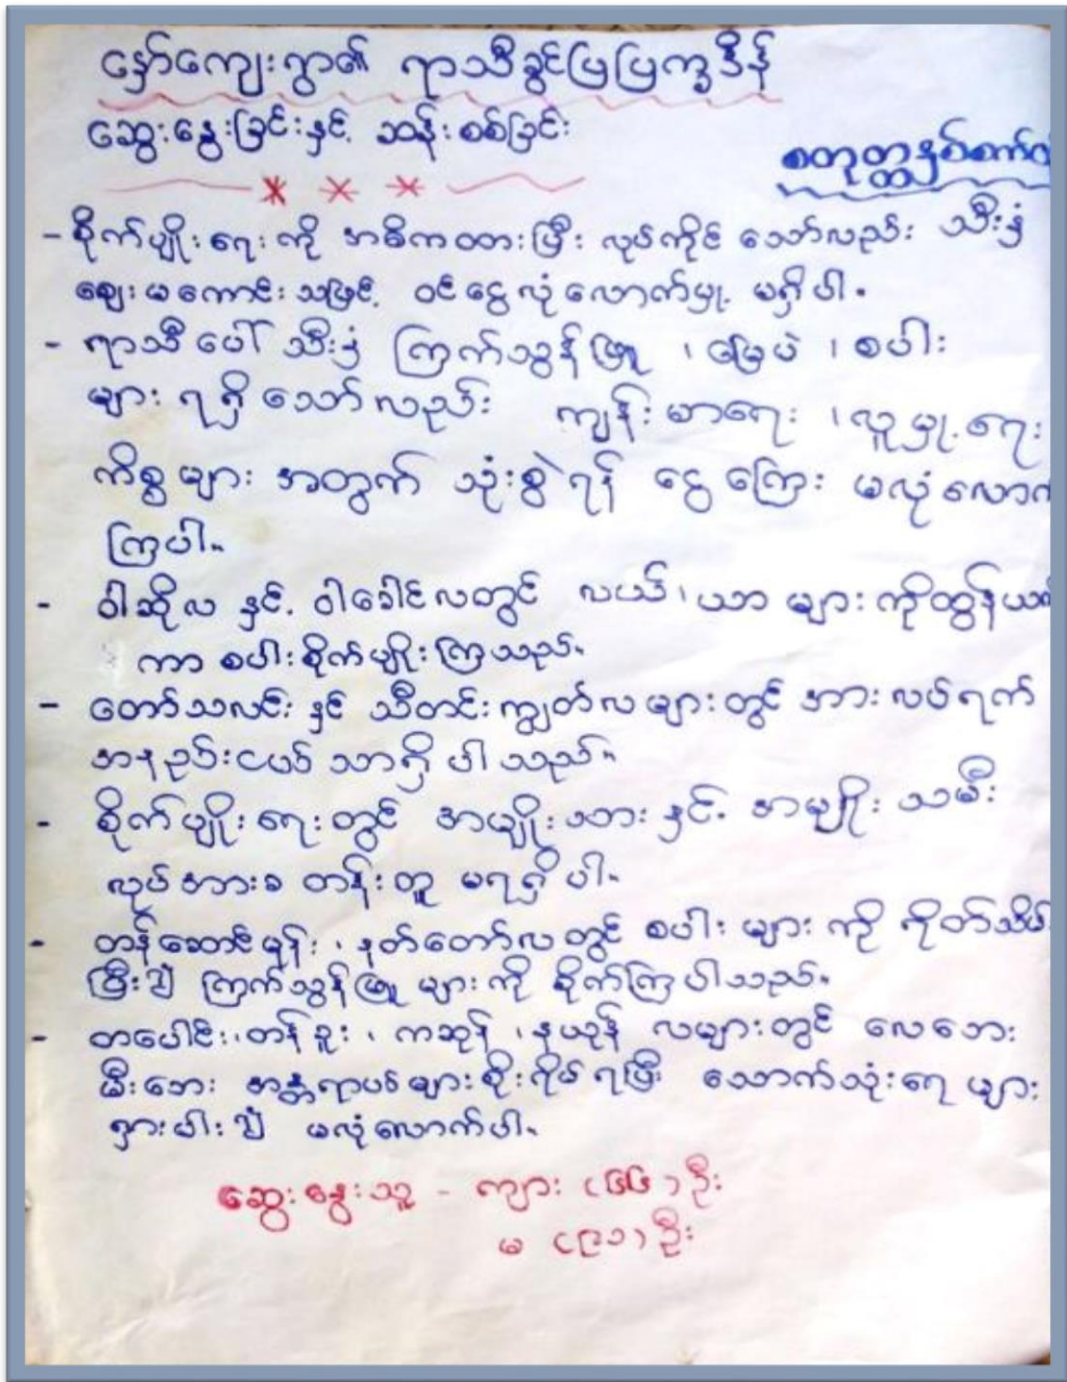 နှော်ကျေးရွာ၏ ရာသီခွင်ပြပြက္ခဒိန်
ဆွေးနွေးခြင်းနှင့် ဆန်းစစ်ခြင်း
စတုတ္ထနှစ်
- စိုက်ပျိုးရေးကို အဓိကထားပြီး လုပ်ကိုင်သော်လည်း သီးနှံ
ဈေးမကောင်းသဖြင့် ဝင်ငွေလုံလောက်မှု့ မရှိပါ။
- ရာသီပေါ်သီးနှံ ကြက်သွန်ဖြူ ၊ မြေပဲ ၊ စပါး
များ ရရှိသော်လည်း ကျန်းမာရေး ၊ လူမှု့ရေး
ကိစ္စများ အတွက် သုံးစွဲရန် ငွေကြေး မလုံလောက်
ကြပါ။
- ဝါဆိုလ နှင့် ဝါခေါင်လတွင် လယ် ၊ ယာ များကိုထွန်ယက်
ကာ စပါးစိုက်ပျိုးကြသည်။
- တော်သလင်း နှင့် သီတင်းကျွတ်လများတွင် အားလပ်ရက်
အနည်းငယ် သာရှိပါသည်။
- စိုက်ပျိုးရေးတွင် အမျိုးသားနှင့် အမျိုးသမီး
လုပ်အားခ တန်းတူ မရရှိပါ။
- တန်ဆောင်မုန်း ၊ နတ်တော်လတွင် စပါးများ ကို ရိတ်သိမ်း
ပြီး၍ ကြက်သွန်ဖြူများကို စိုက်ကြပါသည်။
- တပေါင်း ၊ တန်ခူး ၊ ကဆုန် ၊ နယုန် လများတွင် လေဘေး
မီးဘေး အန္တရာယ်များစိုးရိမ်ရပြီး သောက်သုံးရေများ
ရှားပါး၍ မလုံလောက်ပါ။
ဆွေးနွေးသူ - ကျား (၆၆) ဦး
မ (၉၁) ဦး